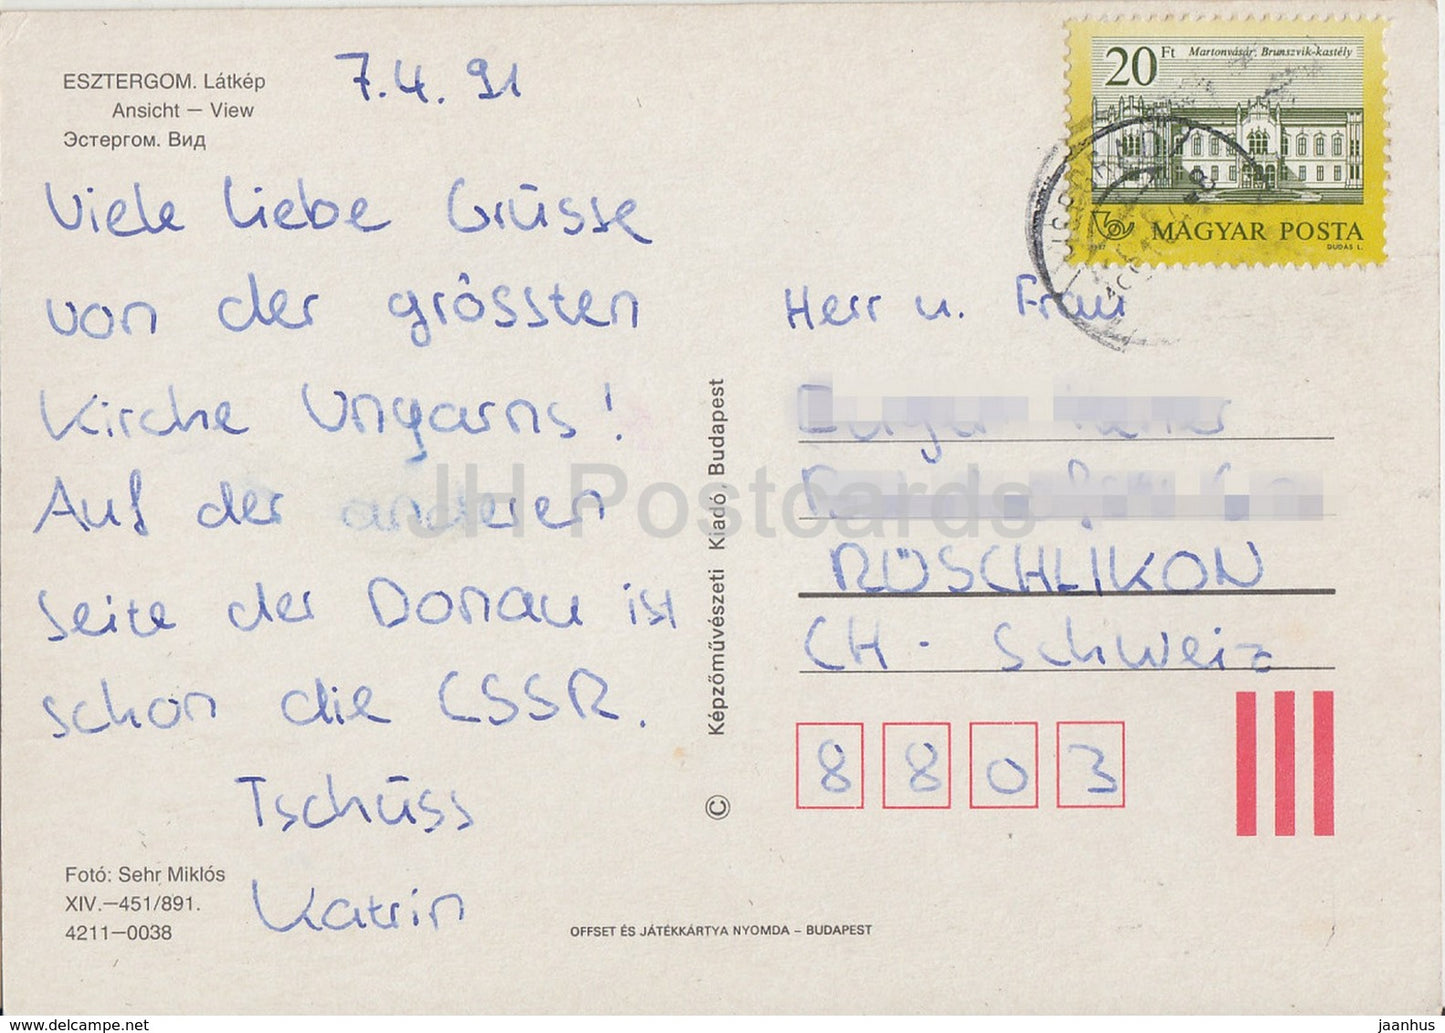 ESZTERGOM. Látkép
Ansicht – View
Эстергом. Вид
7.4.91
Viele liebe Grüsse
von der grössten
Kirche Ungarns!
Auf der anderen
Seite der Donau ist
schon die CSSR.
Tschüss
Katrin
Fotó: Sehr Miklós
XIV.–451/891.
4211–0038
© Képzőművészeti Kiadó, Budapest
OFFSET ÉS JÁTÉKKÁRTYA NYOMDA – BUDAPEST
20 Ft Martonvásár, Brunszvik-kastély
MAGYAR POSTA
DUDÁS L.
VISEGRÁD
Herr u. Frau
RÜSCHLIKON
CH - Schweiz
8 8 0 3
JH Postcards
www.delcampe.net
jaanhus